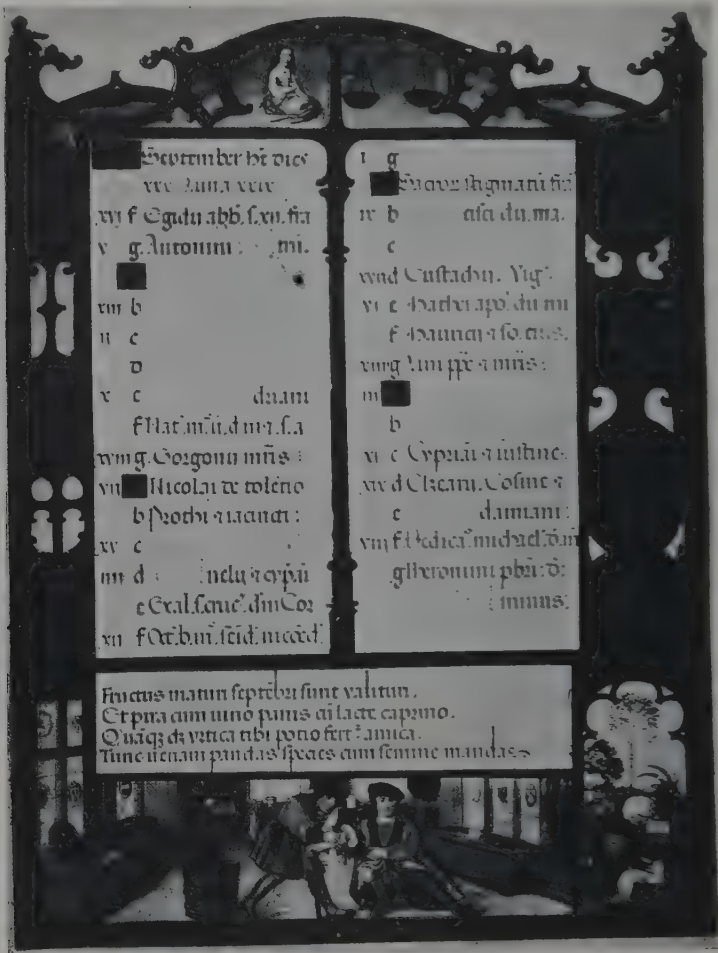 September ht dies
xxx luna xxix
xvi f Egidii abb. s. xii. fra
v g. Antonini : mi.
xiii b
ii c
D
x c du. m
f Nat. m. ii. d m
xviii g. Gorgonii mris :
vii Nicolai de toletio
b Prothi ⁊ iacincti :
xv c
iiii d : nelii ⁊ cyp.ii
e Exal. s. cruc. dni Cor
xii f Oct. b. m. sci d.
i g
Sacroꝝ stigmatū frā
ix b cisci du. ma.
c
xvii d Eustachii. Vig.
vi e Mathei apo. du
f Mauricii ⁊ so. cius.
xiiii g Lini ppe ⁊ mris :
iii
b
xi c Cypriani ⁊ iustine.
xix d Cleani. Cosme ⁊
e damiani :
viii f Dedica. michael.
g Hieronimi pbri : d :
minus.
Fructus maturi septebri sunt valituri.
Et pira cum uino panis cū lacte caprino.
Quāqꝫ de vrtica tibi potio fert amica.
Tunc uenam pandas species cum semine mandas